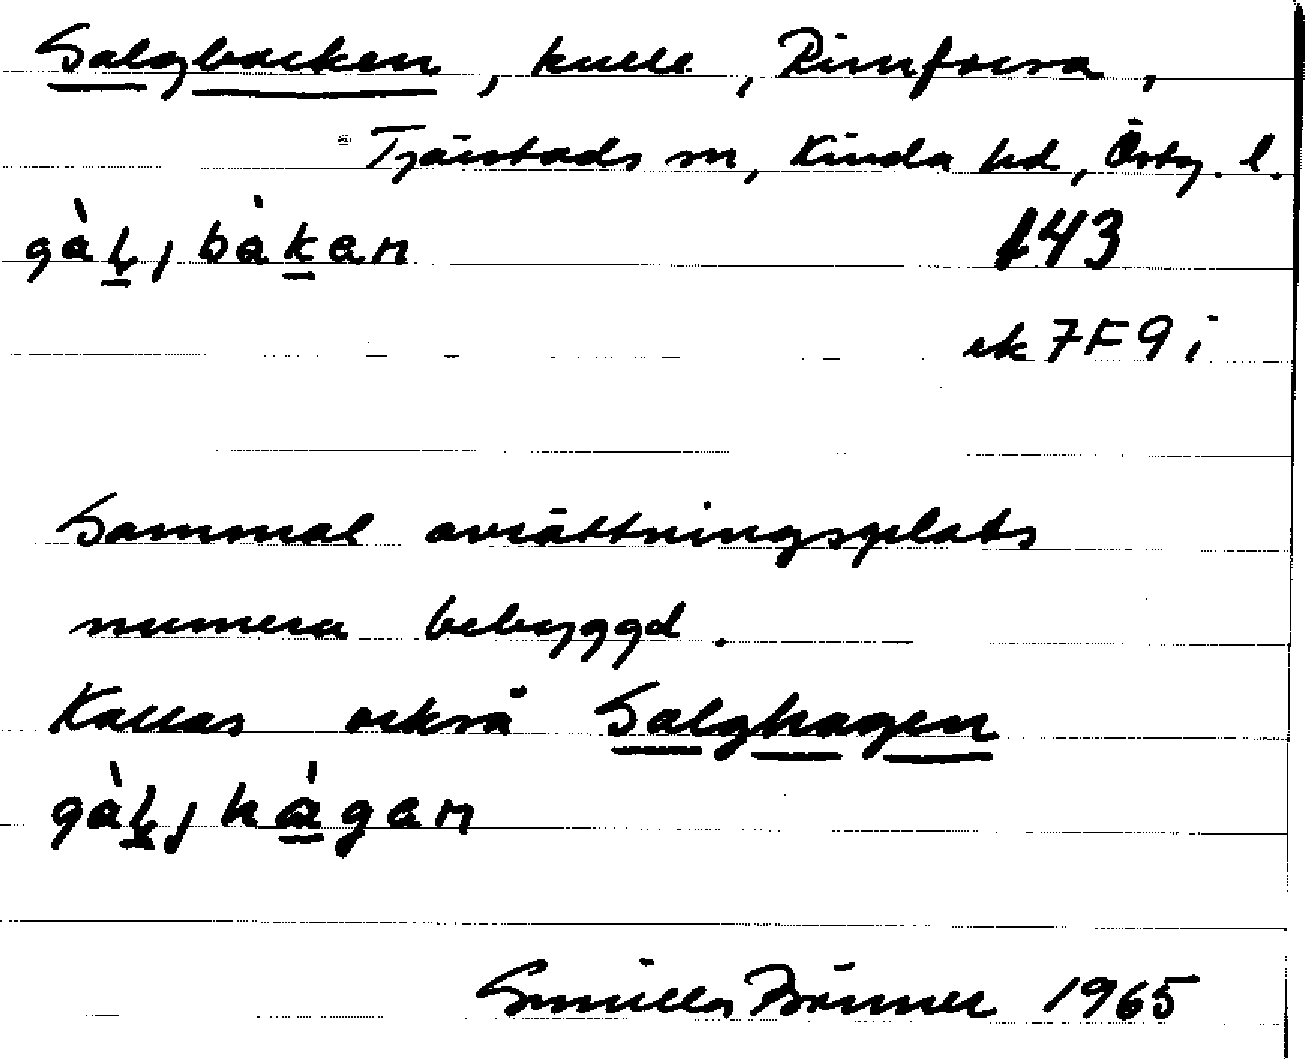 Galgbacken, kulle, Rimforsa,
Tjärstads sn, Kinda hd, Östg. l.
gàḷjbàkan
143
ek 7F9i
Gammal avrättningsplats
numera bebyggd.
Kallas också Galghagen
gàḷjhàgan
Gunilla 1965